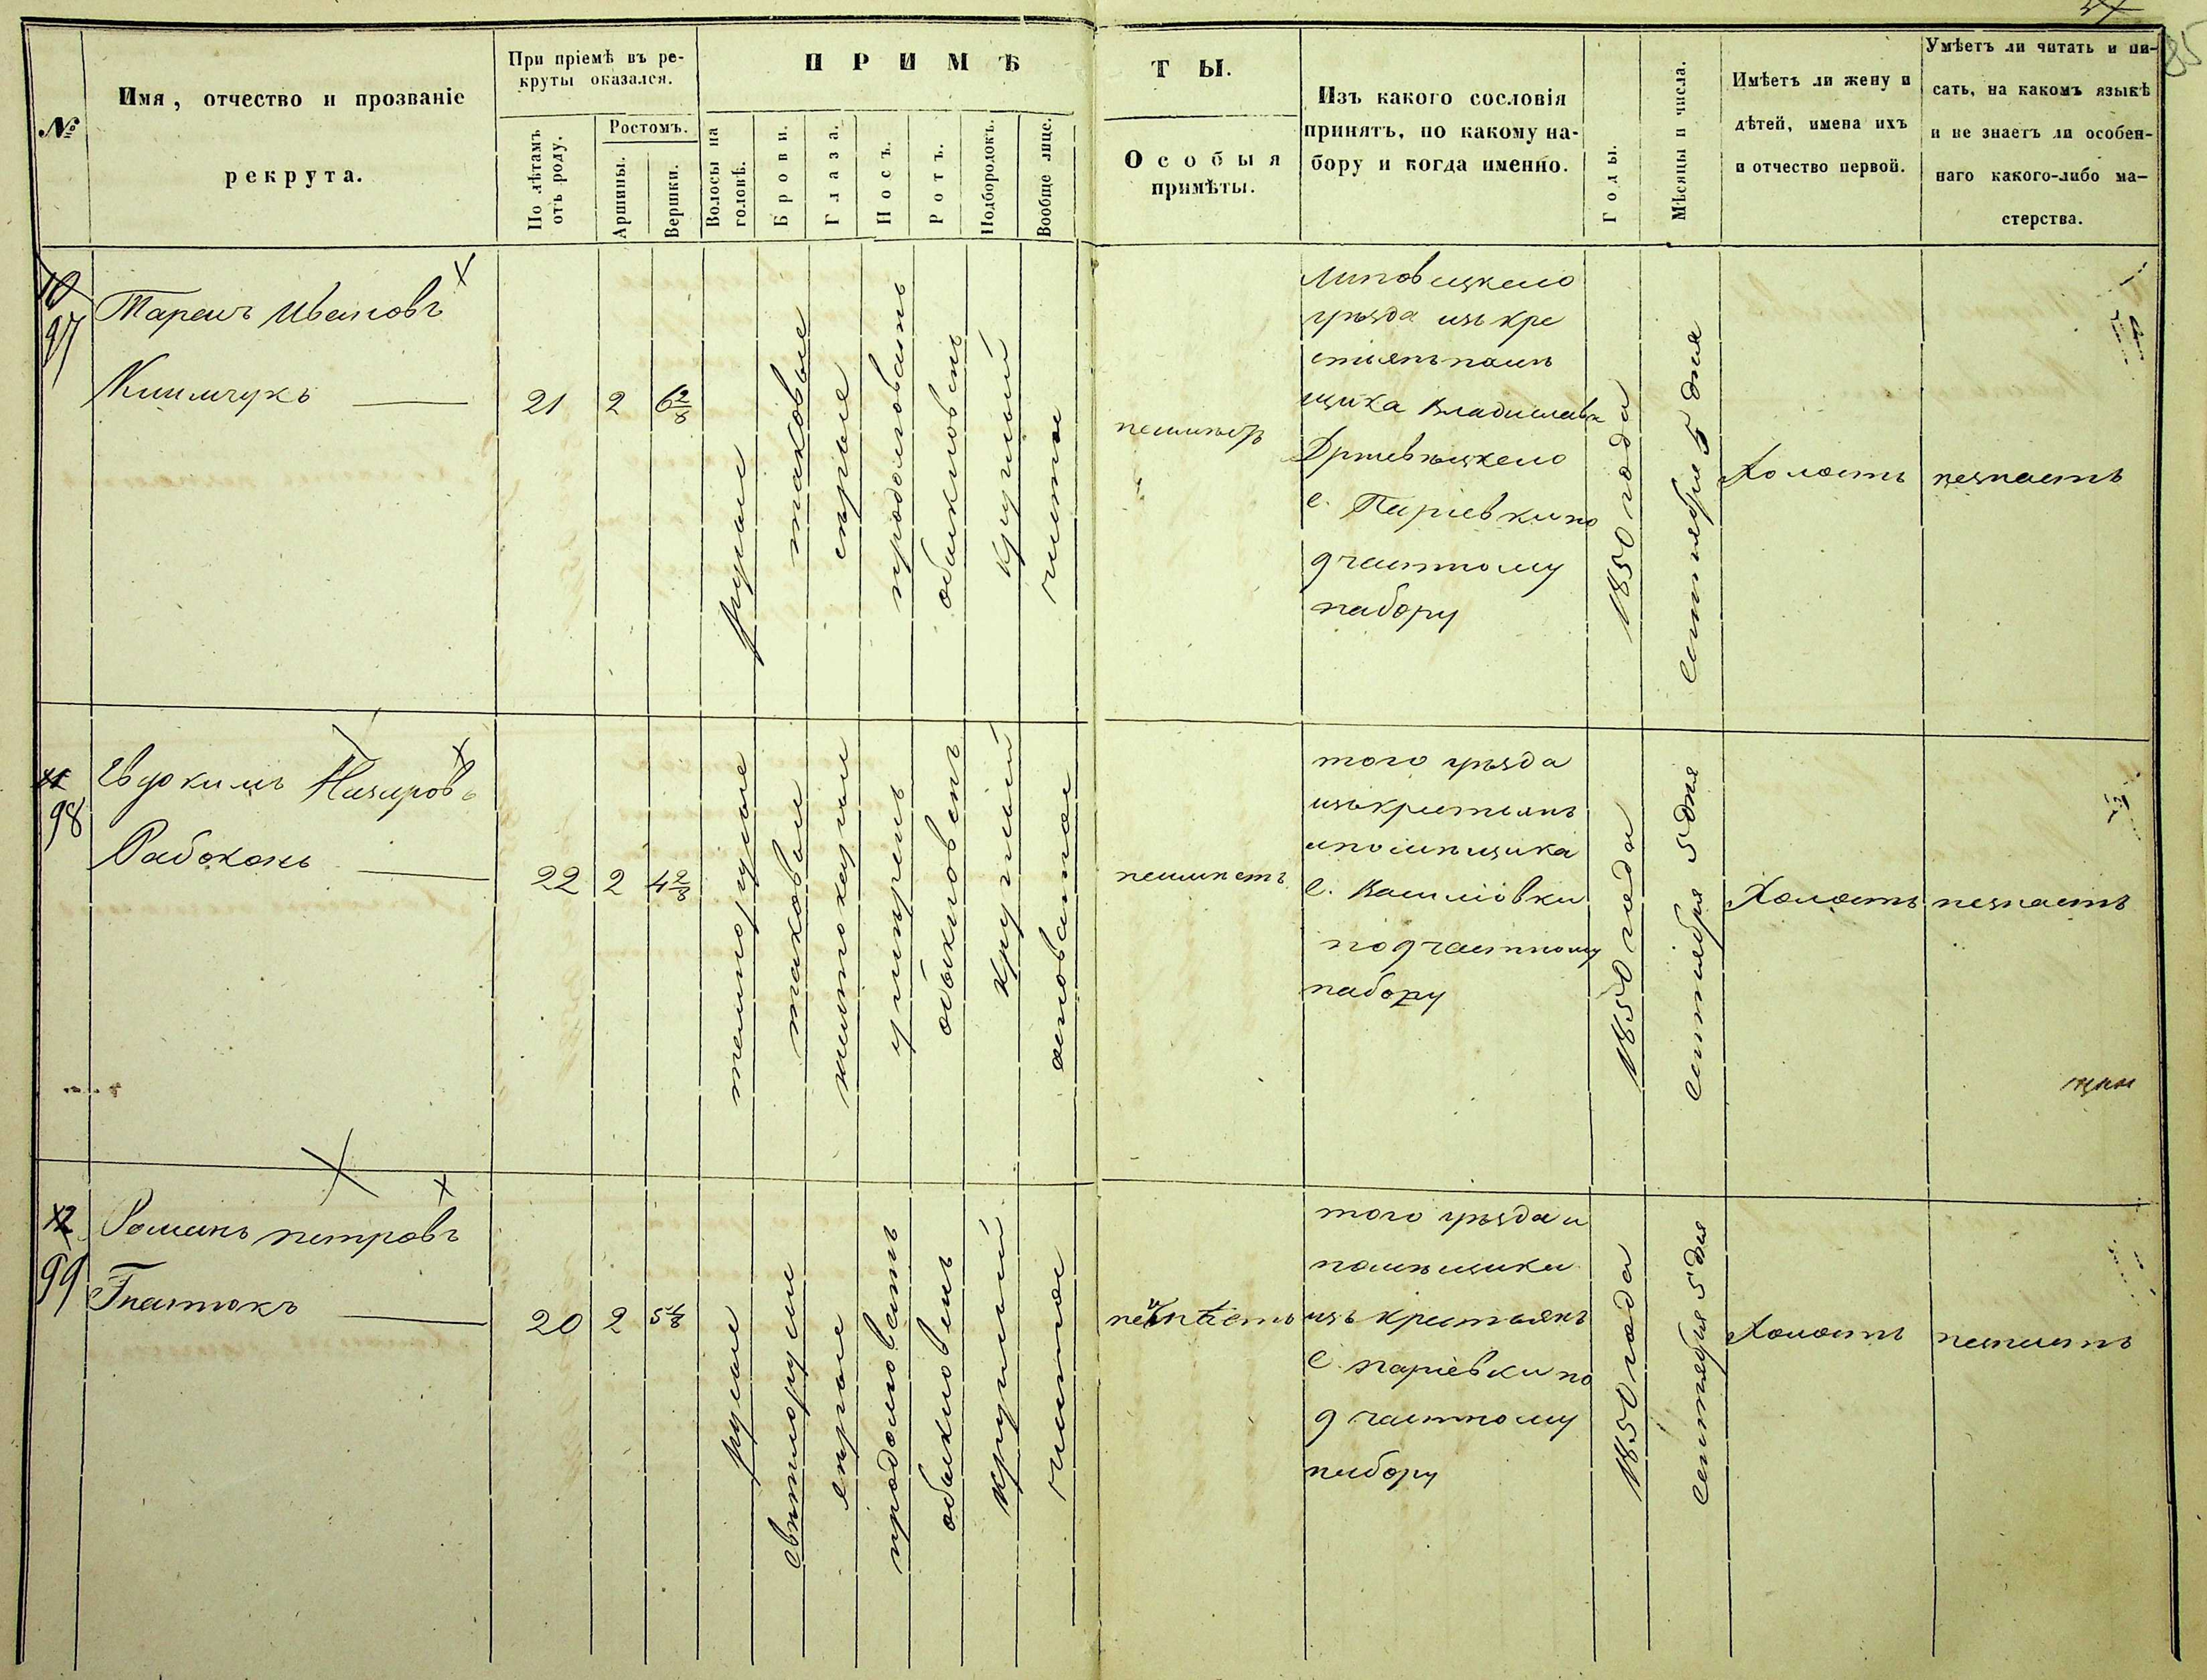 85
№
Имя, отчество и прозваніе
рекрута.
При пріемѣ въ ре-
круты оказался.
По лѣтамъ
отъ роду.
Ростомъ.
Аршины.
Вершки.
ПРИМѢ
ТЫ.
Волосы на
головѣ.
Брови.
Глаза.
Носъ.
Ротъ.
Подбородокъ.
Вообще лице.
Особыя
примѣты.
Изъ какого сословія
принятъ, по какому на-
бору и когда именно.
Годы.
Мѣсяцы и числа.
Имѣетъ ли жену и
дѣтей, имена ихъ
и отчество первой.
Умѣетъ ли читать и пи-
сать, на какомъ языкѣ
и не знаетъ ли особен-
наго какого-либо ма-
стерства.
10
97
Тарасъ Ивановъ
21
2
6 2/8
русые
таковые
сѣрые
продолговатъ
обыкновенъ
круглый
чистое
Липовецкаго
уѣзда изъ кре
стьянъ помѣ
щика Владислава
с. Паріевки по
д частному
набору
1850 года
Сентября 5 дня
Холостъ
незнаетъ
11
98
Евдокимъ Назаровъ
Рабоконь
22
2
4 2/8
темнорусые
таковые
обыкновенъ
круглый
неимѣетъ
того уѣзда
изъ крестьянъ
ипомѣщика
подчастному
набору
1850 года
Сентября 5 дня
Холостъ
незнаетъ
12
99
Романъ петровъ
Гнатюкъ
20
2
русые
свѣтлорусые
сѣрые
продолговатъ
обыкновенъ
круглый
чистое
неимѣетъ
того уѣзда и
помѣщика
изъ крестьянъ
с. паріевки по
д частному
набору
1850 года
Сентября 5 дня
Холостъ
незнаетъ